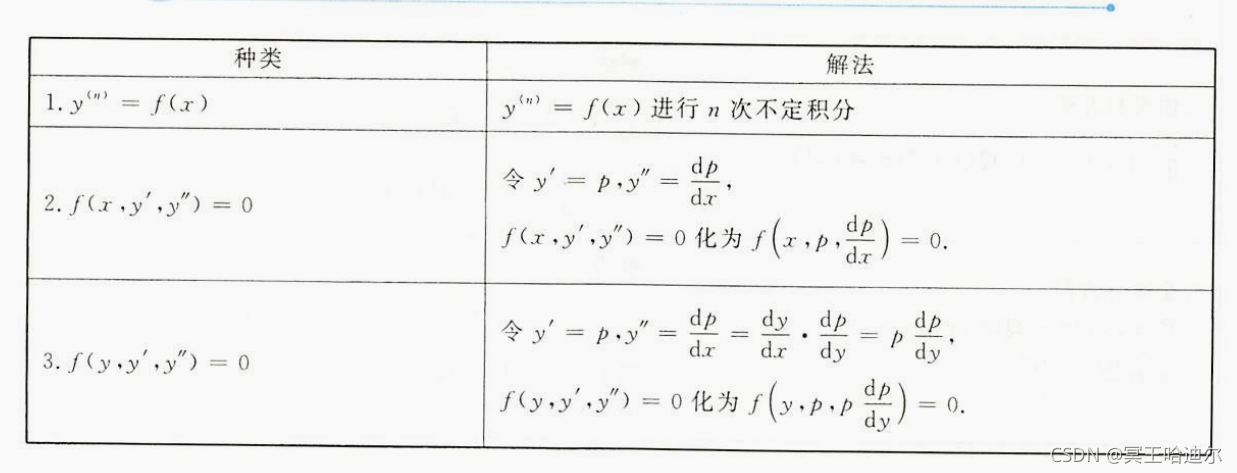 种类 解法
1. y⁽ⁿ⁾ = f(x) y⁽ⁿ⁾ = f(x) 进行 n 次不定积分
2. f(x,y′,y″) = 0
令 y′ = p,y″ = dp/dx,
f(x,y′,y″) = 0 化为 f(x,p,dp/dx) = 0.
3. f(y,y′,y″) = 0
令 y′ = p,y″ = dp/dx = dy/dx · dp/dy = p dp/dy,
f(y,y′,y″) = 0 化为 f(y,p,p dp/dy) = 0.
CSDN @冥王哈迪尔